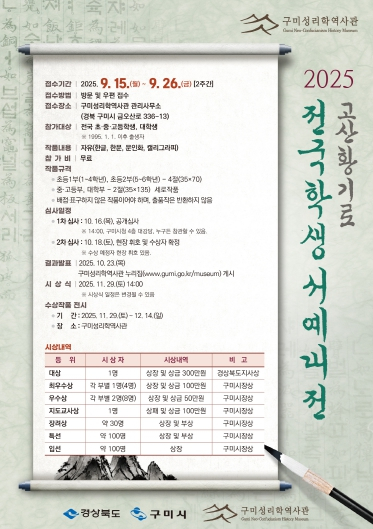 구미성리학역사관
Gumi Neo-Confucianism History Museum
2025
고산황기로
전국학생서예대전
접수기간 : 2025. 9. 15.(월) ~ 9. 26.(금) [2주간]
접수방법 : 방문 및 우편 접수
접수장소 : 구미성리학역사관 관리사무소
(경북 구미시 금오산로 336-13)
참가대상 : 전국 초·중·고등학생, 대학생
※ 1995. 1. 1. 이후 출생자
작품내용 : 자유(한글, 한문, 문인화, 캘리그라피)
참 가 비 : 무료
작품규격
초등1부(1~4학년), 초등2부(5~6학년) - 2절(35×70)
중·고등부, 대학부 - 2절(35×135) 세로작품
배접·표구하지 않은 작품이어야 하며, 출품작은 반환하지 않음
심사일정
1차 심사 : 10. 16.(목), 공개심사
※ 14:00, 구미시청 4층 대강당, 누구든 참관할 수 있음.
2차 심사 : 10. 18.(토), 현장 휘호 및 수상자 확정
※ 수상 예정자 현장 휘호 있음.
결과발표 : 2025. 10. 23.(목)
구미성리학역사관 누리집(www.gumi.go.kr/museum) 게시
시 상 식 : 2025. 11. 29.(토) 14:00
※ 시상식 일정은 변경될 수 있음
수상작품 전시
기 간 : 2025. 11. 29.(토) ~ 12. 14.(일)
장 소 : 구미성리학역사관
시상내역
등 위 시 상 자 시상내역 비 고
대상 1명 상장 및 상금 300만원 경상북도지사상
최우수상 각 부별 1명(4명) 상장 및 상금 100만원 구미시장상
우수상 각 부별 2명(8명) 상장 및 상금 50만원 구미시장상
지도교사상 1명 상패 및 상금 100만원 구미시장상
장려상 약 30명 상장 및 부상 구미시장상
특선 약 100명 상장 및 부상 구미시장상
입선 약 100명 상장 구미시장상
경상북도
구미시
구미성리학역사관
Gumi Neo-Confucianism History Museum